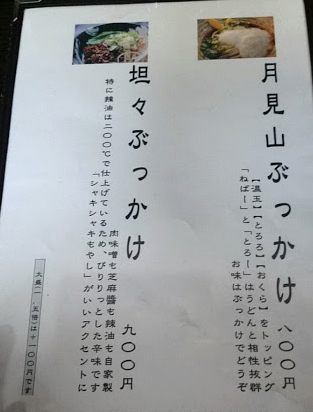 月見山ぶっかけ 八〇〇円
【温玉】【とろろ】【おくら】をトッピング
「ねばー」と「とろー」はうどんと相性抜群
お味はぶっかけでどうぞ
坦々ぶっかけ 九〇〇円
肉味噌も芝麻醬も辣油も自家製
特に辣油は二〇〇℃で仕上げているため、ぴりりっとした辛味です
「シャキシャキもやし」がいいアクセントに
大盛(一．五倍)は＋一〇〇円です